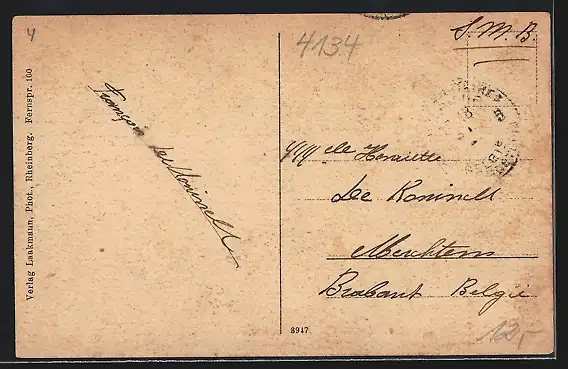 4
4134
S. M. B.
Verlag Laakmann, Phot., Rheinberg. Fernspr. 100
François De Koninck
Mlle Henriette
De Koninck
Merchtem
Brabant Belgie
8947
12,-